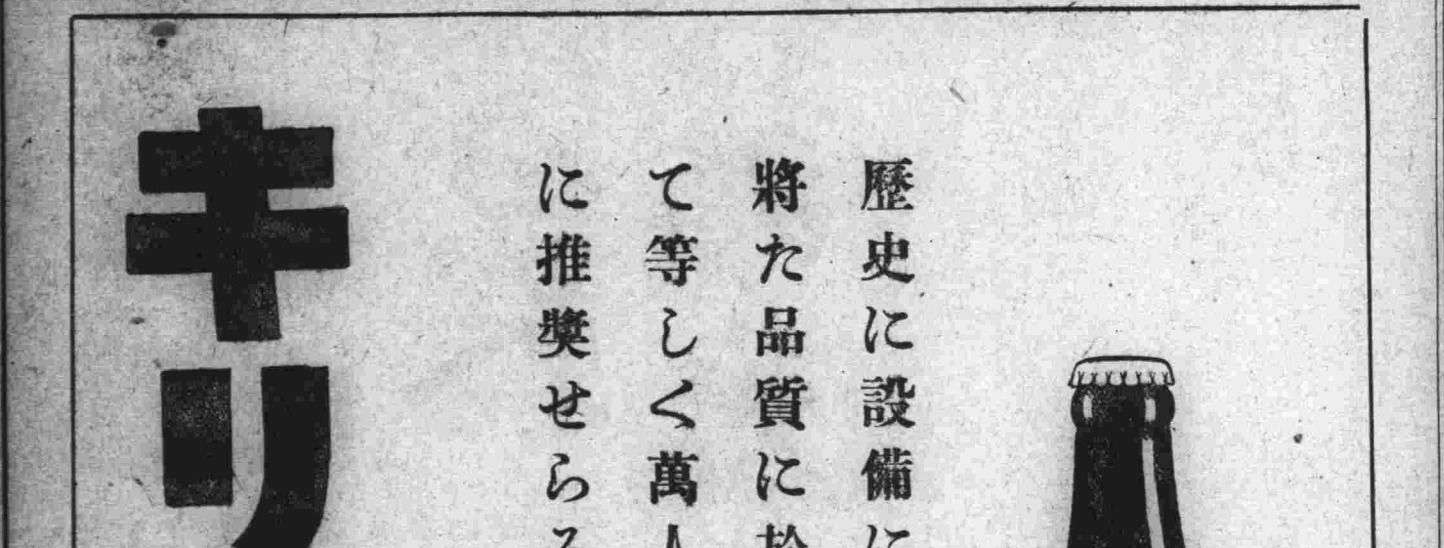 歷史に設備に
將た品質に於
て等しく萬人
に推奬せらる
キリ